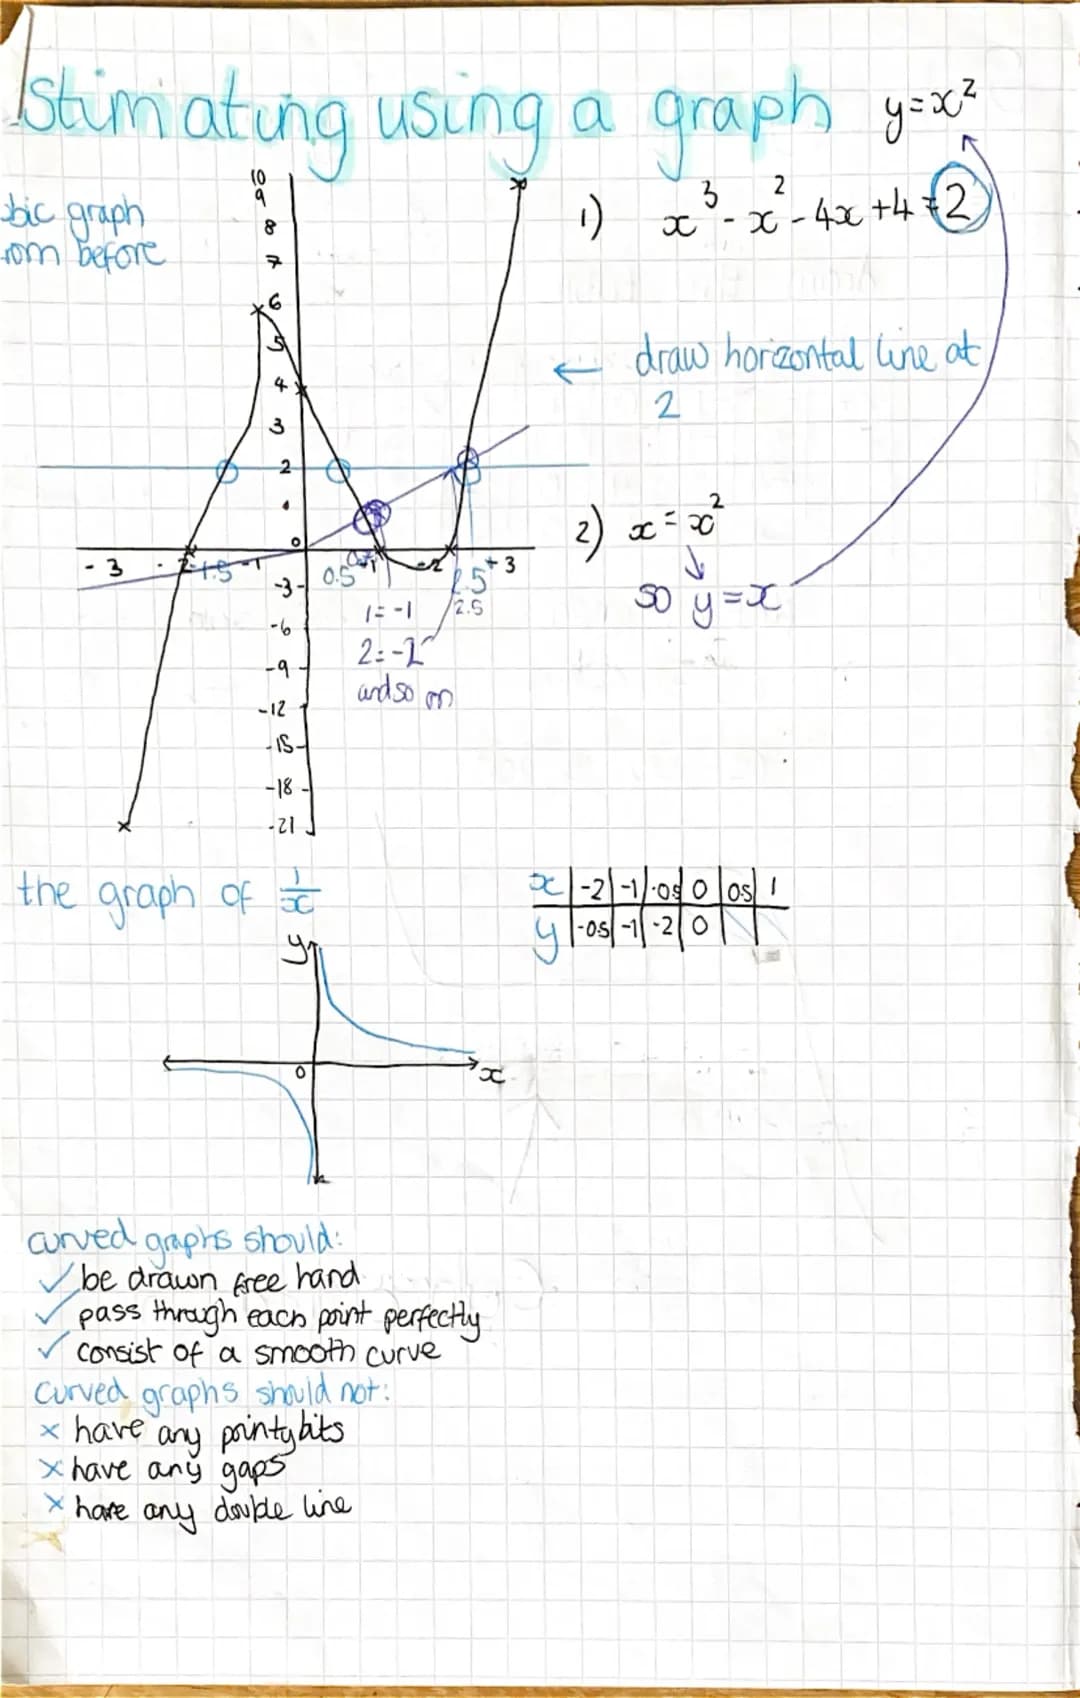 stimating using a graph y=x²
bic graph
rom before
1) x³ - x² - 4x + 4 = 2
← draw horizontal line at
2
2) x = x²
↓
so y = x
10
9
8
7
6
5
4
3
2
1
0
-3 -2 -1.5 -1 0.5 1 2 2.5 +3
-3
-6
-9
-12
-15
-18
-21
1 = -1 2.5
2 = -2
and so on
the graph of 1/x
x | -2 | -1 | -05 | 0 | 05 | 1
y | -0.5 | -1 | -2 | 0
y
0 x
curved graphs should:
✓ be drawn free hand
✓ pass through each point perfectly
✓ consist of a smooth curve
curved graphs should not:
x have any pointy bits
x have any gaps
x have any double line